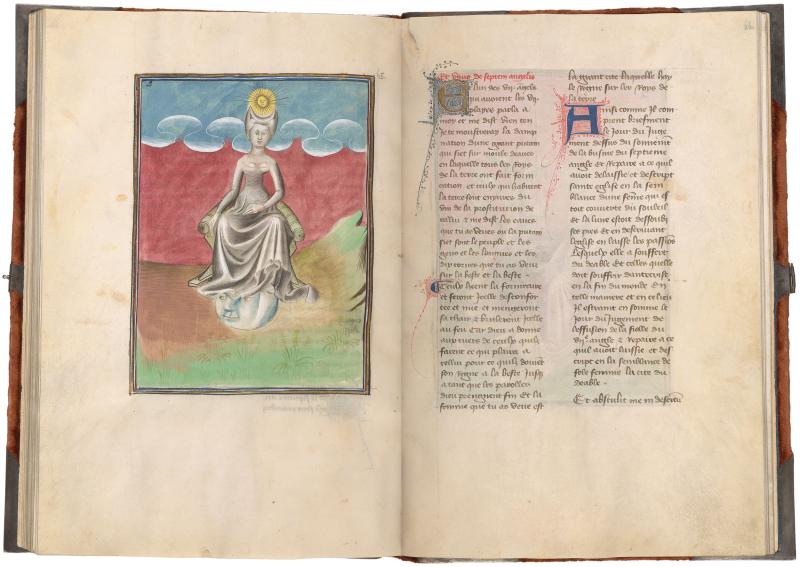 Et unus de septem angelis
Et lun des vij. angels
qui auoient les vij.
phyoles parla a
moy et me dist vien ien
te monstreray la damp
nation dune grant putain
qui siet sur moult deaues
en laquelle tous les roys
de la terre ont fait forni
cation et ceulx qui habitent
la terre sont enyures du
vin de la prostitution de
cellui et me dist les eaues
que tu as veues ou la putain
siet sont le peuple et les
gens et les lãnues et les
dix cornes que tu as veu
sur la beste et la beste
Ceulx heent la formicaire
et feront icelle desconfor
tee et nue et mengeront
sa char et bruleront icelle
au feu Car dieu a donne
aux cuers de ceulx quilz
facent ce qui plaira a
cellui pour ce quilz doinent
son regne a la beste Jusq
a tant que les parolles
dieu prengnent fin Et la
femme que tu as veue est
la grant cite laquelle hay
le regne sur les roys de
la terre
Ainsi comme Jl com
prent briefment
le Jour du Juge
ment dessus du sonnement
de la busine du septieme
angle et repaire a ce quil
auoit delaissie et descript
sainte eglise en la sem
blance dune femme qui est
toit couuerte du souleil
et la lune estoit dessoubz
ses pies Et en descriuant
leglise en laisse les passions
lesquelx elle a souffert
du deable Et celles quelle
doit souffrir dantecrist
en la fin du monde En
telle maniere et en ce lieu
Jl estraint en somme le
Jour du Jugement de
leffusion de la fiolle du
vij. angle et repaire a ce
quil auoit laissie et des
cript en la semblance de
fole femme la cite du
deable
Et abstulit me in desertũ